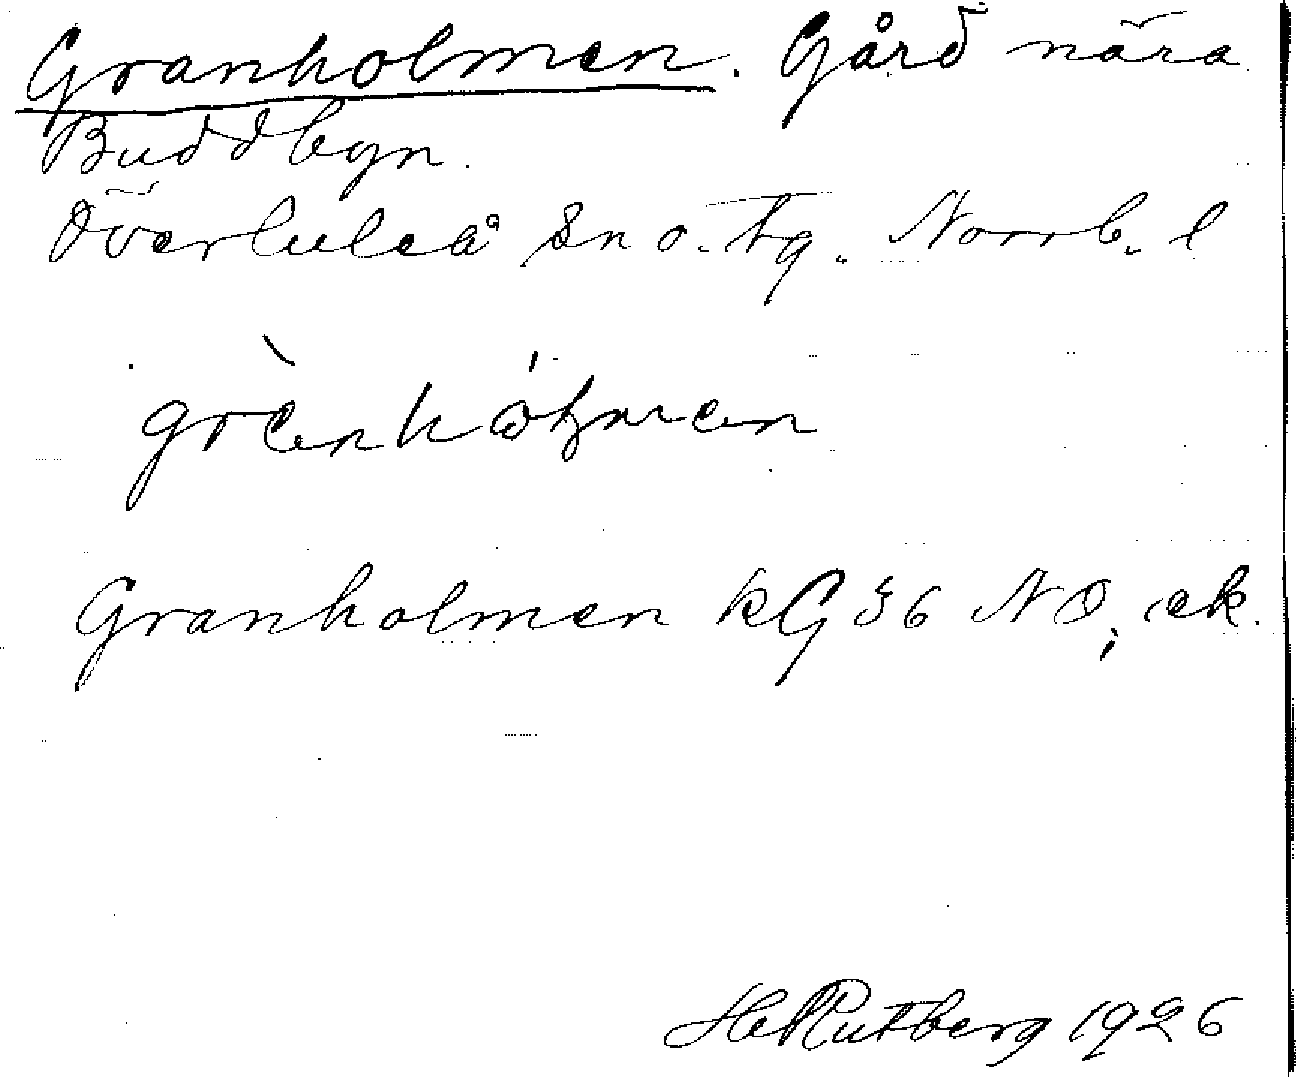 Granholmen. Gård nära
Buddbyn.
Överluleå sn o. tg. Norrb. l
Granholmen kG 36 NO, ek.
He Rutberg 1926